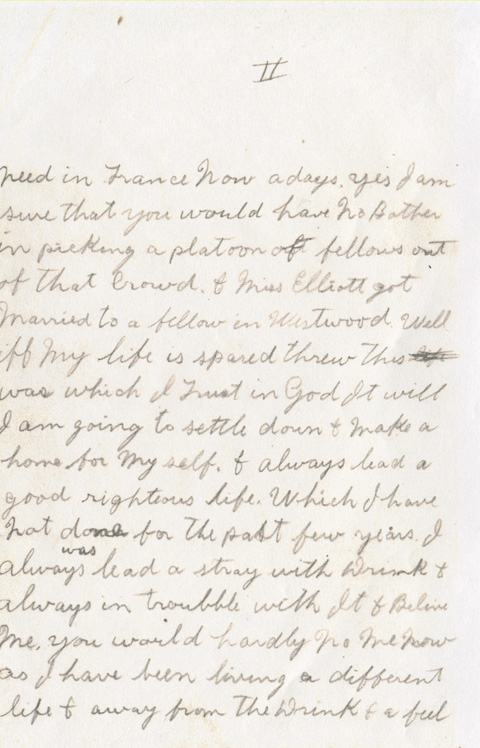 II
need in France Now adays. yes I am
sure that you would have No Bother
in picking a platoon off fellows out
of that Crowd. & Miss Elliott got
Married to a fellow in Westwood. Well
iff My life is spared threw this
war which I Trust in God It will
I am going to settle down & Make a
home for My self. & always lead a
good righteous life. Which I have
Not done for the past few years. I
was
always lead a stray with Drink &
always in troubble with It & Belive
Me, you would hardly No Me Now
as I have been living a different
life & away from the Drink & a feel